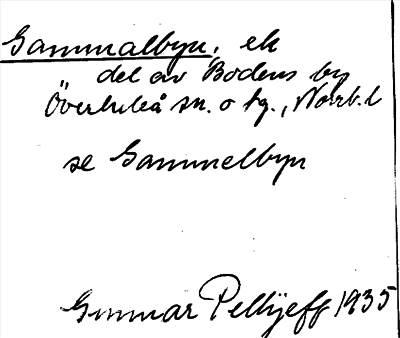 Gammalbyn, ek
del av Bodens by
Överluleå sn. o tg., Norrb. l
se Gammelbyn
Gunnar Pellijeff 1935